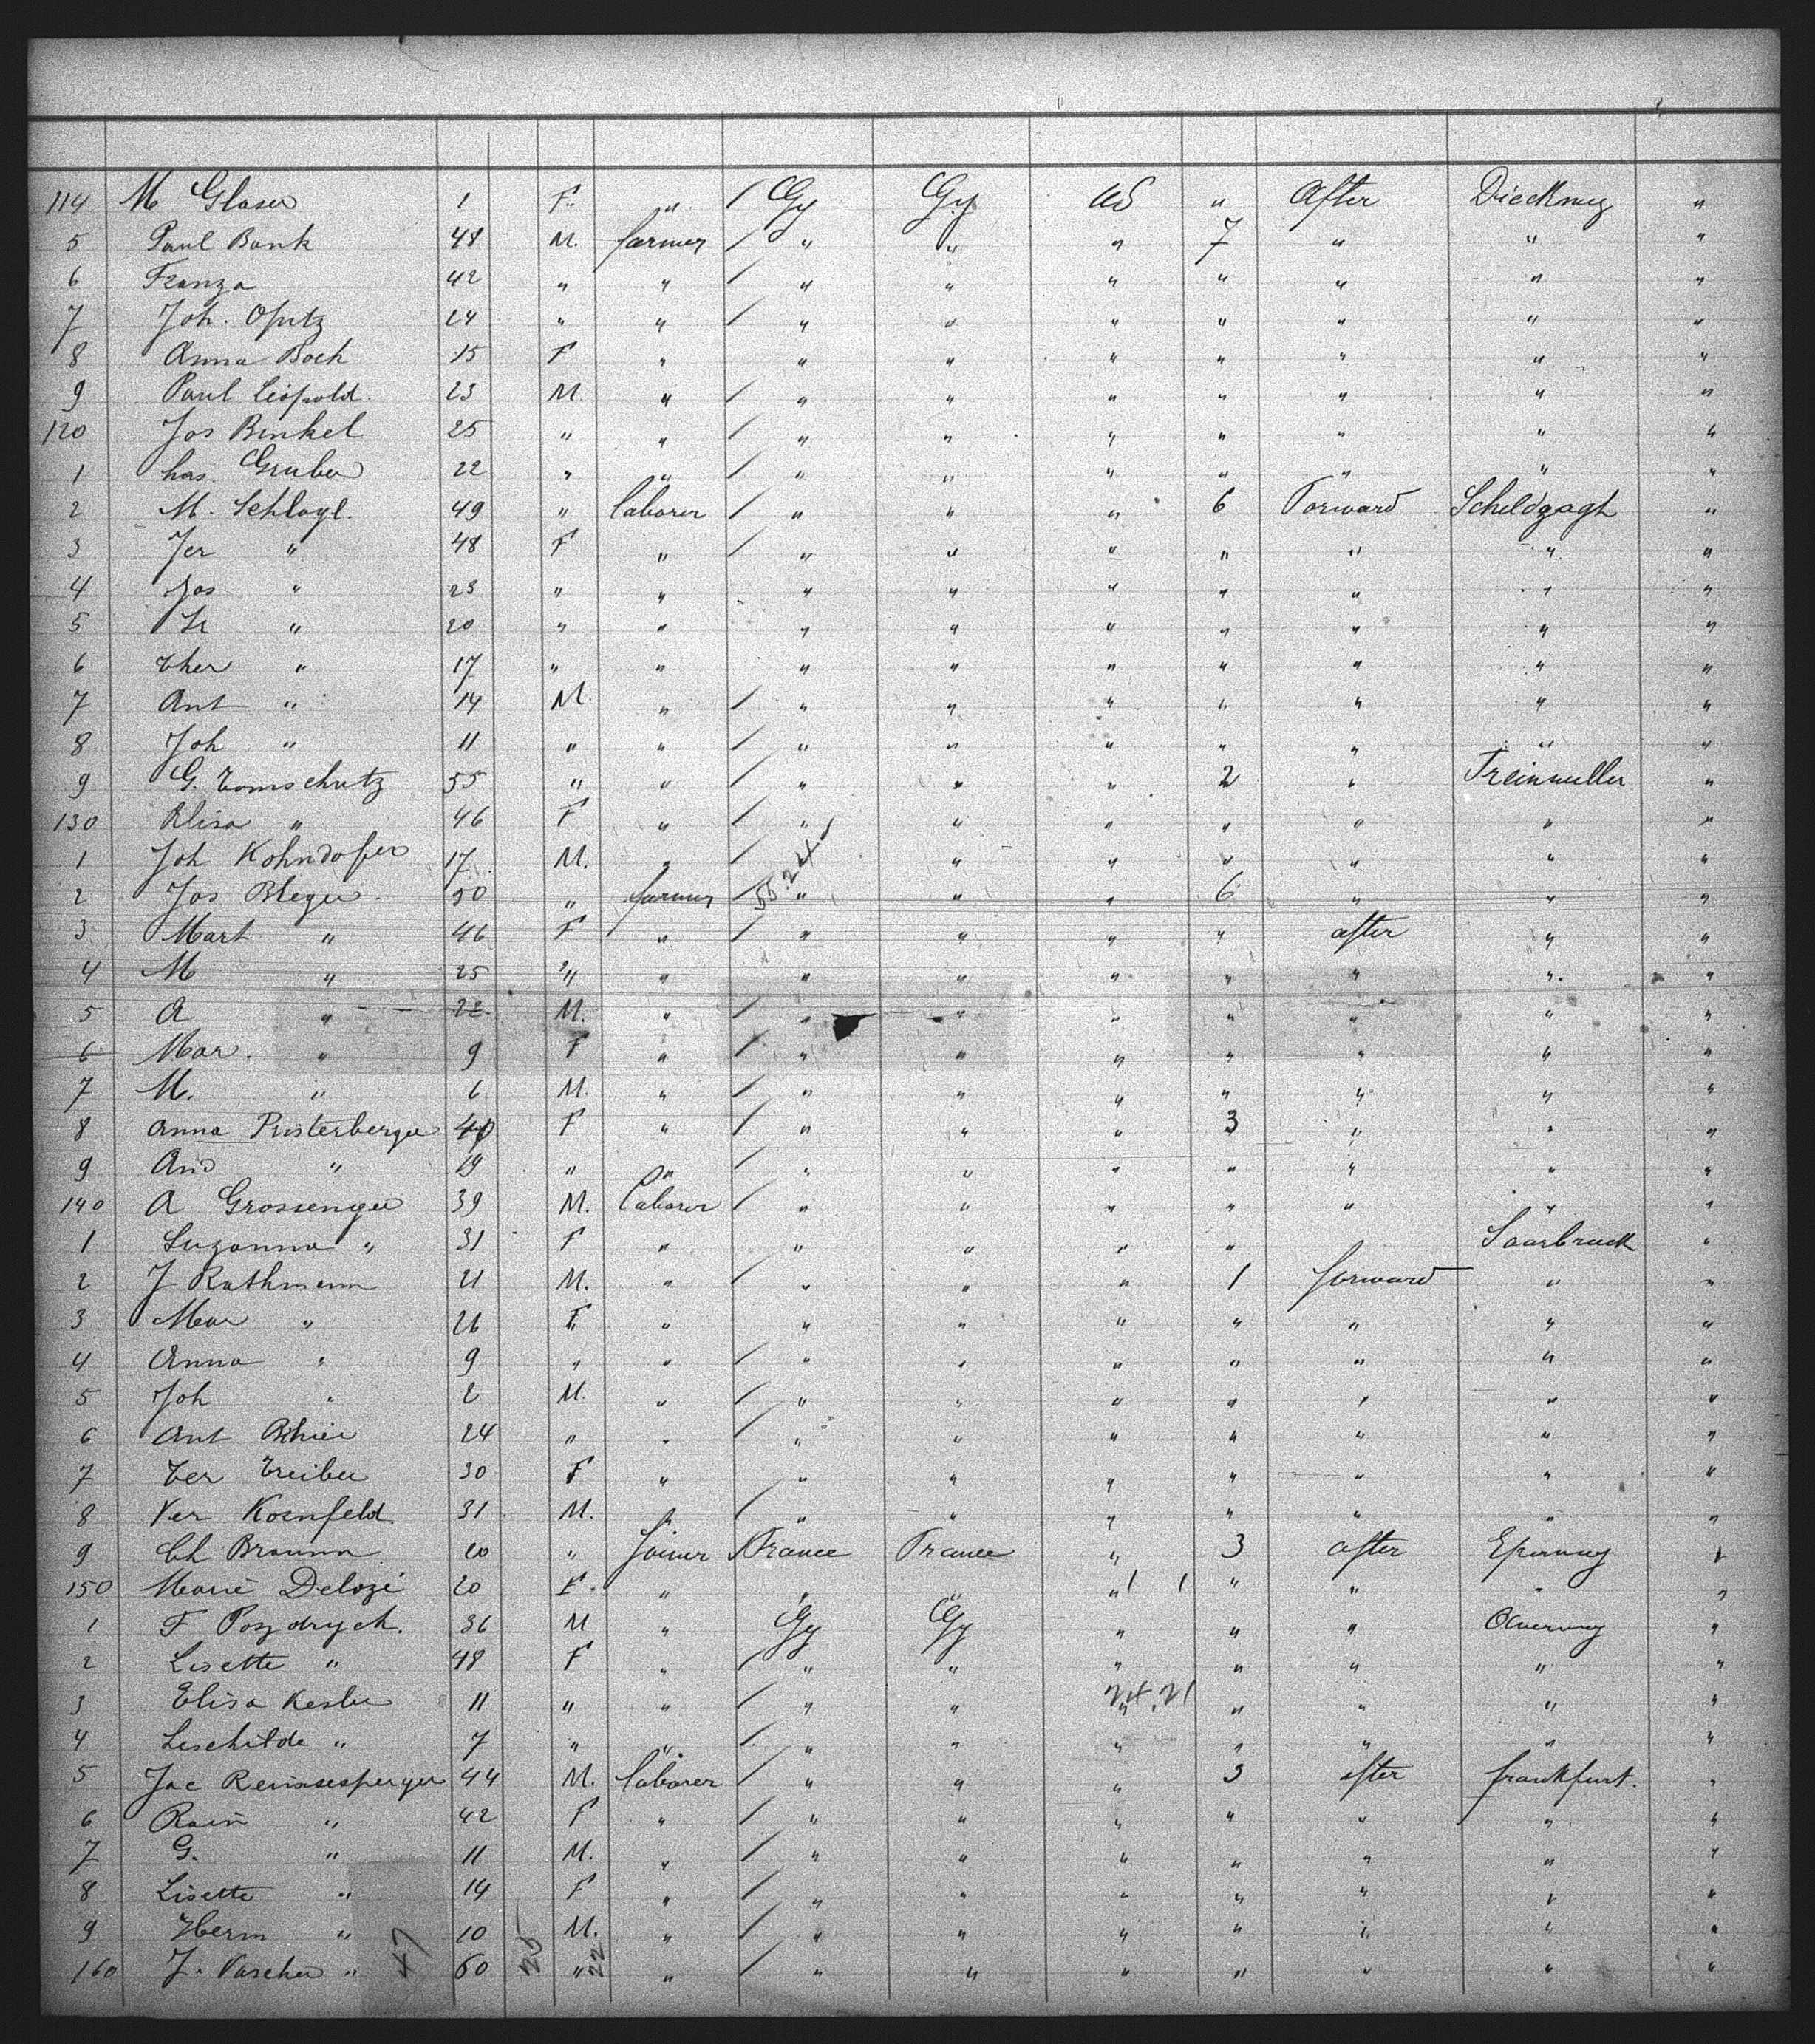 114 M Glaser 1 F. " / Gy Gy US " After Dieckmey "
5 Paul Bank 48 M. farmer / " " " 7 " " "
6 Franza 42 " " / " " " " " " "
7 Joh. Opitz 24 " " / " " " " " " "
8 Anna Boek 15 F " " " " " " " "
9 Paul Leopold. 23 M. " / " " " " " " "
120 Jos Binkel 25 " " / " " " " " " "
1 has. Gruber 22 " " / " " " " " " "
2 M. Schlagl. 49 " laborer / " " " 6 Forward Scheldzagh "
3 Jer " 48 F " / " " " " " " "
4 Jos " 23 " " " " " " " " "
5 " 20 " " " " " " " " "
6 Ther " 17 " " " " " " " " "
7 Ant " 14 M. " / " " " " " " "
8 Joh " 11 " " / " " " " " " "
9 G. Tomschutz 55 " " / " " " 2 " Treinmuller "
130 Elisa " 46 F " / " " " " " " "
1 Joh Kohndofer 17 M. " / " " " " " " "
55.24
2 Jos Bleger 50 " farmer / " " " 6 " " "
3 Mart " 46 F " / " " " " after " "
4 M " 25 " " " " " " " " "
5 A " 22 M. " / " " " " " " "
6 Mar. " 9 F " / " " " " " " "
7 M. " 6 M. " / " " " " " " "
8 Anna Pristerberger 40 F " / " " " 3 " " "
9 And " 19 " " / " " " " " " "
140 A Grossenger 39 M. laborer / " " " " " " "
1 Suzanna " 31 F " " " " " Saarbruck "
2 J Rathmann 21 M. " / " " " 1 forward " "
3 Mar " 26 F " " " " " " " "
4 Anna " 9 " " / " " " " " " "
5 Joh " 2 M. " / " " " " " " "
6 Ant 24 " " / " " " " " " "
7 Ter Treiber 30 F " " " " " " " "
8 Ver Kornfeld 31 M. " / " " " " " " "
9 Ch Braunn 20 " Joiner / France France " 3 after Epernay "
150 Marie Delozé 20 F. " " " " " " " "
1 F Pozdryck. 36 M " Gy Gy " " " "
2 Lisette " 48 F " / " " " " " " "
3 Elisa Kesler 11 " " / " " " " " " "
24.21
4 Leschilde " 7 " " / " " " " " " "
5 Jac Reinsesperger 44 M. laborer / " " " 3 after frankfurt. "
6 " 42 F " / " " " " " " "
7 G. " 11 M. " / " " " " " " "
8 Lisette " 14 F " / " " " " " " "
9 Herm " 10 M. " / " " " " " " "
160 J. Vascher " 60 " " / " " " " " " "
47 25 22